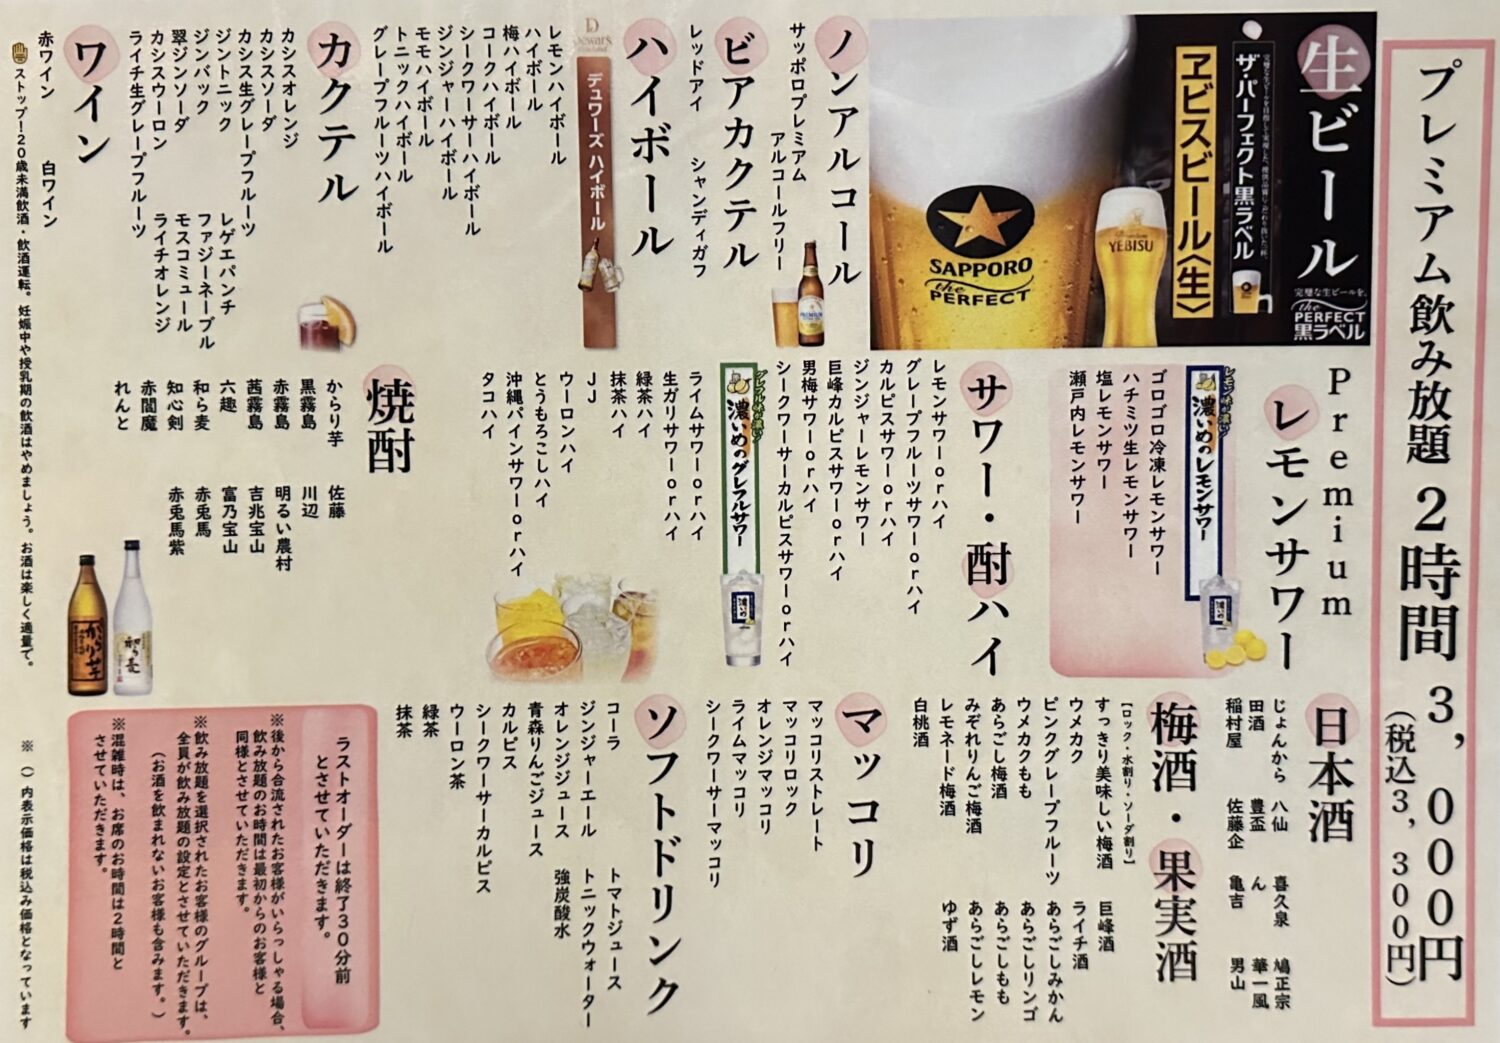 プレミアム飲み放題 2時間 3,000円
(税込3,300円)
生ビール
完璧な生ビールを。
the PERFECT
黒ラベル
ザ・パーフェクト黒ラベル
ヱビスビール〈生〉
YEBISU
SAPPORO
the
PERFECT
ノンアルコール
サッポロプレミアム
アルコールフリー
ビアカクテル
レッドアイ
シャンディガフ
ハイボール
Dewar's
デュワーズ ハイボール
レモンハイボール
ハイボール
梅ハイボール
コークハイボール
シークワーサーハイボール
ジンジャーハイボール
モモハイボール
トニックハイボール
グレープフルーツハイボール
カクテル
カシスオレンジ
カシスソーダ
カシス生グレープフルーツ
ジントニック
ジンバック
翠ジンソーダ
カシスウーロン
ライチ生グレープフルーツ
レゲエパンチ
ファジーネーブル
モスコミュール
ライチオレンジ
ワイン
赤ワイン
白ワイン
Premium
レモンサワー
レモン味が濃い!
濃いめのレモンサワー
ゴロゴロ冷凍レモンサワー
ハチミツ生レモンサワー
塩レモンサワー
瀬戸内レモンサワー
サワー・酎ハイ
レモンサワーorハイ
グレープフルーツサワーorハイ
カルピスサワーorハイ
ジンジャーレモンサワー
巨峰カルピスサワーorハイ
男梅サワーorハイ
シークワーサーカルピスサワーorハイ
グレフル味が濃い!
濃いめのグレフルサワー
ライムサワーorハイ
生ガリサワーorハイ
緑茶ハイ
抹茶ハイ
JJ
ウーロンハイ
とうもろこしハイ
沖縄パインサワーorハイ
タコハイ
焼酎
からり芋
黒霧島
赤霧島
茜霧島
六趣
和ら麦
知心剣
赤閻魔
れんと
佐藤
川辺
明るい農村
吉兆宝山
富乃宝山
赤兎馬
赤兎馬紫
からり芋
和ら麦
日本酒
じょんから 八仙 喜久泉 鳩正宗
田酒 豊盃 ん 華一風
稲村屋 佐藤企 亀吉 男山
梅酒・果実酒
【ロック・水割り・ソーダ割り】
すっきり美味しい梅酒
ウメカク
ピンクグレープフルーツ
ウメカクもも
あらごし梅酒
みぞれりんご梅酒
レモネード梅酒
白桃酒
巨峰酒
ライチ酒
あらごしみかん
あらごしリンゴ
あらごしもも
あらごしレモン
ゆず酒
マッコリ
マッコリストレート
マッコリロック
オレンジマッコリ
ライムマッコリ
シークワーサーマッコリ
ソフトドリンク
コーラ
ジンジャーエール
オレンジジュース
青森りんごジュース
カルピス
シークワーサーカルピス
ウーロン茶
緑茶
抹茶
トマトジュース
トニックウォーター
強炭酸水
ラストオーダーは終了30分前
とさせていただきます。
※後から合流されたお客様がいらっしゃる場合、
飲み放題のお時間は最初からのお客様と
同様とさせていただきます。
※飲み放題を選択されたお客様のグループは、
全員が飲み放題の設定とさせていただきます。
(お酒を飲まれないお客様も含みます。)
※混雑時は、お席のお時間は2時間と
させていただきます。
ストップ!20歳未満飲酒・飲酒運転。妊娠中や授乳期の飲酒はやめましょう。お酒は楽しく適量で。
※()内表示価格は税込み価格となっています